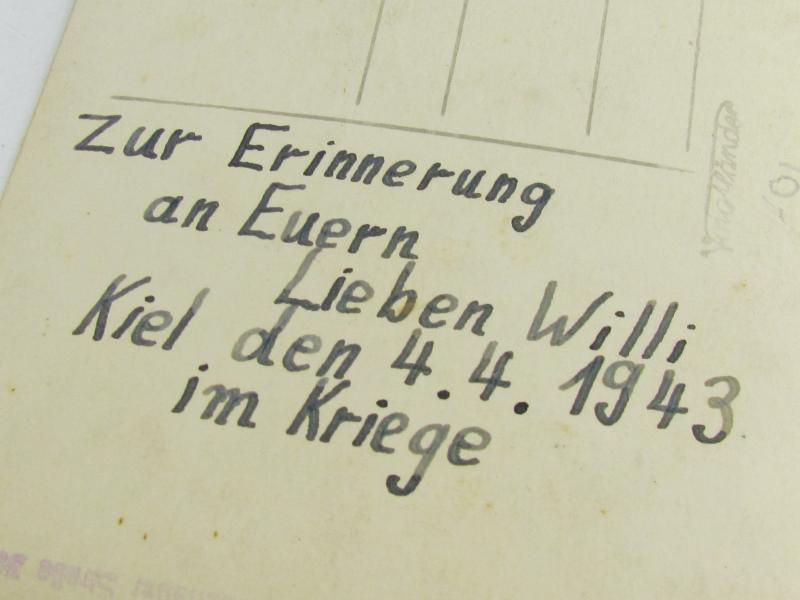 Zur Erinnerung
an Euern
Lieben Willi
Kiel den 4. 4. 1943
im Kriege